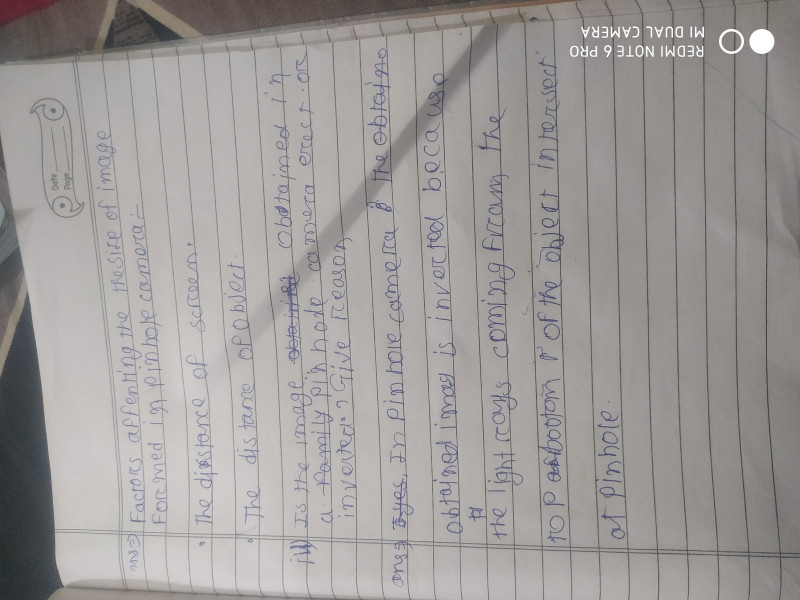 Date
Page
ans⇒ Factors affenting the the size of image
formed in pinhole camera :-
• The distance of screen.
• The distance of object.
iv) Is the image obtained in
a pinhole camera erect or
inverted? Give reason
ans⇒ In pinhole camera the
obtained imag is inverted because
the light rays coming from the
top & bottom of the object intersect
at pinhole.
REDMI NOTE 6 PRO
MI DUAL CAMERA